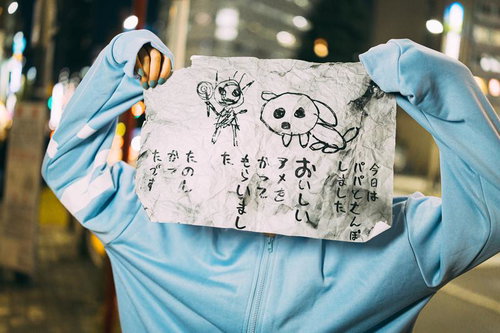 今日は
パパとさんぽ
しました
おいしい
アメを
かって
もらいまし
た
たのし
かっ
たです